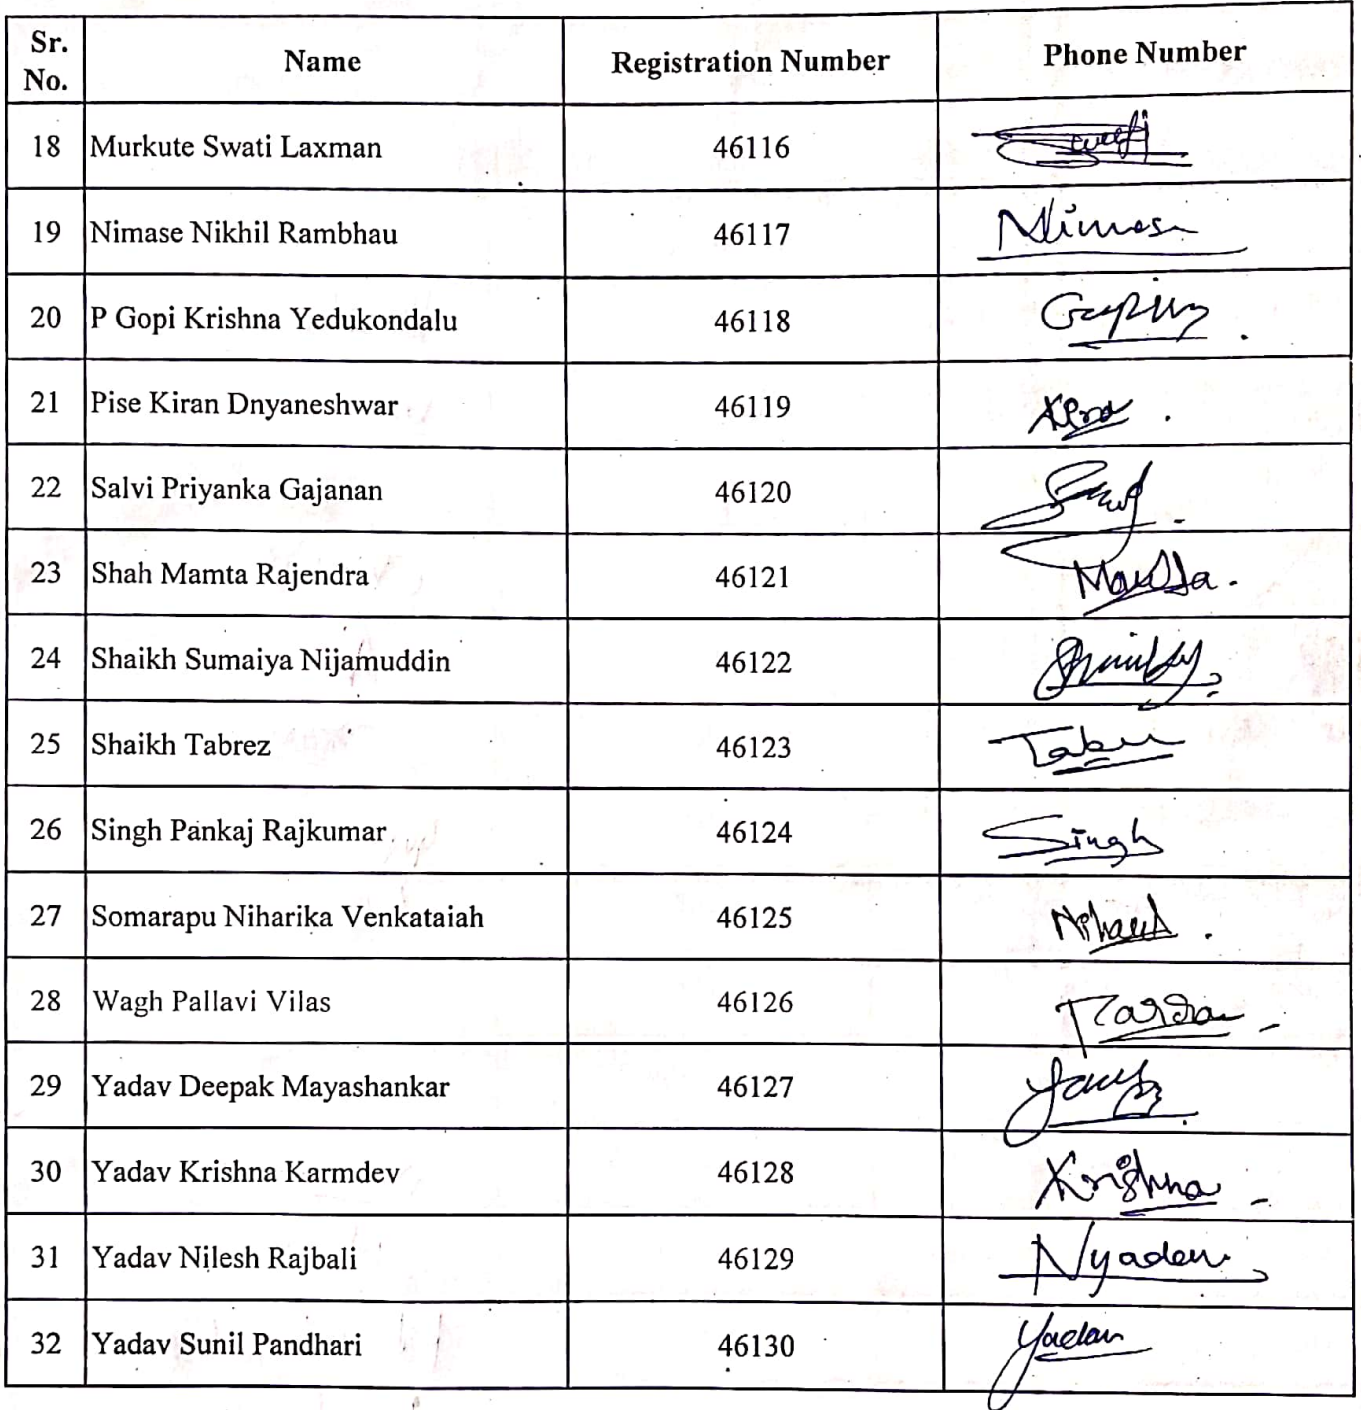 Sr. No. Name Registration Number Phone Number
18 Murkute Swati Laxman 46116 Swati
19 Nimase Nikhil Rambhau 46117 Nimase
20 P Gopi Krishna Yedukondalu 46118
21 Pise Kiran Dnyaneshwar 46119
22 Salvi Priyanka Gajanan 46120
23 Shah Mamta Rajendra 46121
24 Shaikh Sumaiya Nijamuddin 46122
25 Shaikh Tabrez 46123
26 Singh Pankaj Rajkumar 46124 Singh
27 Somarapu Niharika Venkataiah 46125
28 Wagh Pallavi Vilas 46126
29 Yadav Deepak Mayashankar 46127
30 Yadav Krishna Karmdev 46128 Krishna
31 Yadav Nilesh Rajbali 46129 Nyadav
32 Yadav Sunil Pandhari 46130 Yadav